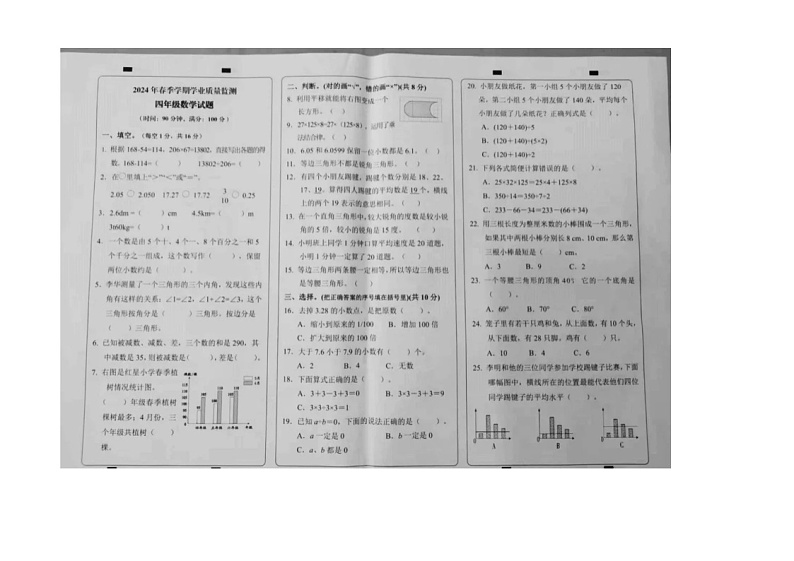 2024 年春季学期学业质量监测
四年级数学试题
(时间：90 分钟，满分：100 分)
一、填空。(每空 1 分，共 16 分)
1. 根据 168-54=114，206×67=13802，直接写出各题的得
数。168-114=（ ） 13802÷206=（ ）
2. 在○里填上“＞”“＜”或“=”。
2.05 ○ 2.050 17.27 ○ 17.72 3/10 ○ 0.25
3. 2.6dm =（ ）cm 4.5km=（ ）m
3t60kg=（ ）t
4. 一个数是由 5 个十、4 个一、8 个百分之一和 5
个千分之一组成，这个数写作（ ），保留
两位小数约是（ ）。
5. 李华测量了一个三角形的三个内角，发现这些内
角有这样的关系：∠1=∠2，∠1+∠2=∠3，这个
三角形按角分是（ ）三角形，按边分是
（ ）三角形。
6. 已知被减数、减数、差，三个数的和是 290，其
中减数是 35，则被减数是（ ），差是（ ）。
7. 右图是红星小学春季植
树情况统计图。
（ ）年级春季植树
棵树最多；4 月份，三
个年级共植树（ ）
棵。
二、判断。(对的画“√”，错的画“×”)(共 8 分)
8. 利用平移就能将右图变成一个
长方形。（ ）
9. 27×125×8=27×（125×8），运用了乘
法结合律。（ ）
10. 6.05 和 6.0599 保留一位小数都是 6.1。（ ）
11. 等边三角形不都是锐角三角形。（ ）
12. 有四个小朋友踢毽，踢毽个数分别是 18、22、
17、19。算得四人踢毽的平均数是 19 个，横线
上的两个 19 表示的意思相同。（ ）
13. 在一个直角三角形中，较大锐角的度数是较小锐
角的 5 倍，较小的锐角是 15 度。（ ）
14. 小明班上同学 1 分钟口算平均速度是 20 道题，
小明 1 分钟一定算了 20 道题。（ ）
15. 等边三角形两条腰一定相等，所以等边三角形也
是等腰三角形。（ ）
三、选择。(把正确答案的序号填在括号里)(共 10 分)
16. 去掉 3.28 的小数点，是把原数（ ）。
A．缩小到原来的 1/100 B．增加 100 倍
C．扩大到原来的 100 倍
17. 大于 7.6 小于 7.9 的小数有（ ）个。
A．2 B．4 C．无数
18. 下面算式正确的是（ ）。
A．3＋3－3＋3＝0 B．3×3－3＋3＝9
C．3×3÷3×3＝1
19. 已知 a÷b＝0，下面的说法正确的是（ ）。
A．a 一定是 0 B．b 一定是 0
C．a、b 都是 0
20. 小朋友做纸花，第一小组 5 个小朋友做了 120
朵，第二小组 5 个小朋友做了 140 朵，平均每个
小朋友做了几朵纸花？正确列式是（ ）。
A．(120＋140)÷5
B．(120＋140)÷(5×2)
C．(120＋140)÷2
21. 下列各式简便计算错误的是（ ）。
A．25×32×125＝25×4＋125×8
B．350÷14＝350÷7÷2
C．233－66－34＝233－(66＋34)
22. 用三根长度为整厘米数的小棒围成一个三角形，
如果其中两根小棒分别长 8 cm、10 cm，那么第
三根小棒最短是（ ）cm。
A．3 B．9 C．2
23. 一个等腰三角形的顶角 40° 它的一个底角是
（ ）。
A．60° B．70° C．80°
24. 笼子里有若干只鸡和兔，从上面数，有 10 个头，
从下面数，有 28 只脚，鸡有（ ）只。
A．10 B．4 C．6
25. 李明和他的三位同学参加学校踢毽子比赛，下面
哪幅图中，横线所在的位置最能代表他们四位
同学踢毽子的平均水平（ ）。
A B C